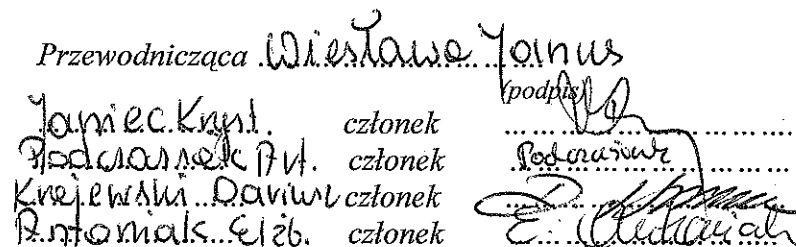 Przewodnicząca Wiesława Janus
(podpis)
Japiec Kryst. członek
Podczasek Art. członek
Krejewski Dariusz członek
Antoniak Elżb. członek E. Antoniak